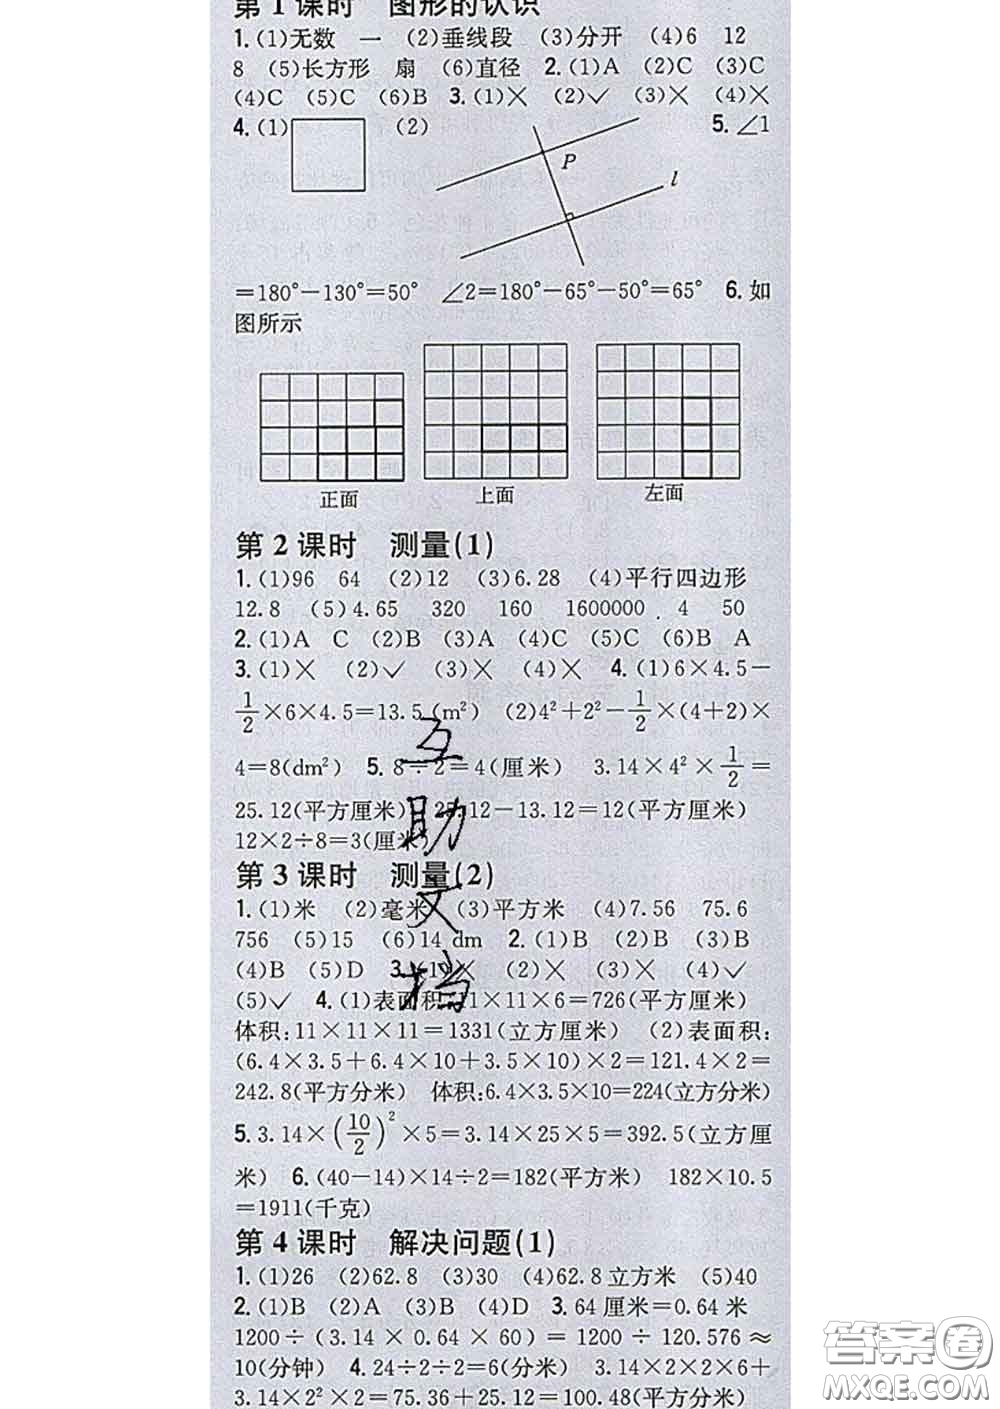 第1课时 图形的认识
1.(1)无数 一 (2)垂线段 (3)分开 (4)6 12
8 (5)长方形 扇 (6)直径 2.(1)A (2)C (3)C
(4)C (5)C (6)B 3.(1)× (2)✓ (3)× (4)×
4.(1) (2) 5.∠1
P
l
=180°−130°=50° ∠2=180°−65°−50°=65° 6.如
图所示
正面 上面 左面
第2课时 测量(1)
1.(1)96 64 (2)12 (3)6.28 (4)平行四边形
12.8 (5)4.65 320 160 1600000 4 50
2.(1)A C (2)B (3)A (4)C (5)C (6)B A
3.(1)× (2)✓ (3)× (4)× 4.(1)6×4.5−
1/2×6×4.5=13.5(m²) (2)4²+2²−1/2×(4+2)×
4=8(dm²) 5.8÷2=4(厘米) 3.14×4²×1/2=
25.12(平方厘米) 25.12−13.12=12(平方厘米)
12×2÷8=3(厘米)
互助文档
第3课时 测量(2)
1.(1)米 (2)毫米 (3)平方米 (4)7.56 75.6
756 (5)15 (6)14 dm 2.(1)B (2)B (3)B
(4)B (5)D 3.(1)× (2)× (3)× (4)✓
(5)✓ 4.(1)表面积:11×11×6=726(平方厘米)
体积:11×11×11=1331(立方厘米) (2)表面积:
(6.4×3.5+6.4×10+3.5×10)×2=121.4×2=
242.8(平方分米) 体积:6.4×3.5×10=224(立方分米)
5.3.14×(10/2)²×5=3.14×25×5=392.5(立方厘
米) 6.(40−14)×14÷2=182(平方米) 182×10.5
=1911(千克)
第4课时 解决问题(1)
1.(1)26 (2)62.8 (3)30 (4)62.8立方米 (5)40
2.(1)B (2)A (3)B (4)D 3.64厘米=0.64米
1200÷(3.14×0.64×60)=1200÷120.576≈
10(分钟) 4.24÷2÷2=6(分米) 3.14×2×2×6+
3.14×2²×2=75.36+25.12=100.48(平方分米)
答案圈
MXQE.COM